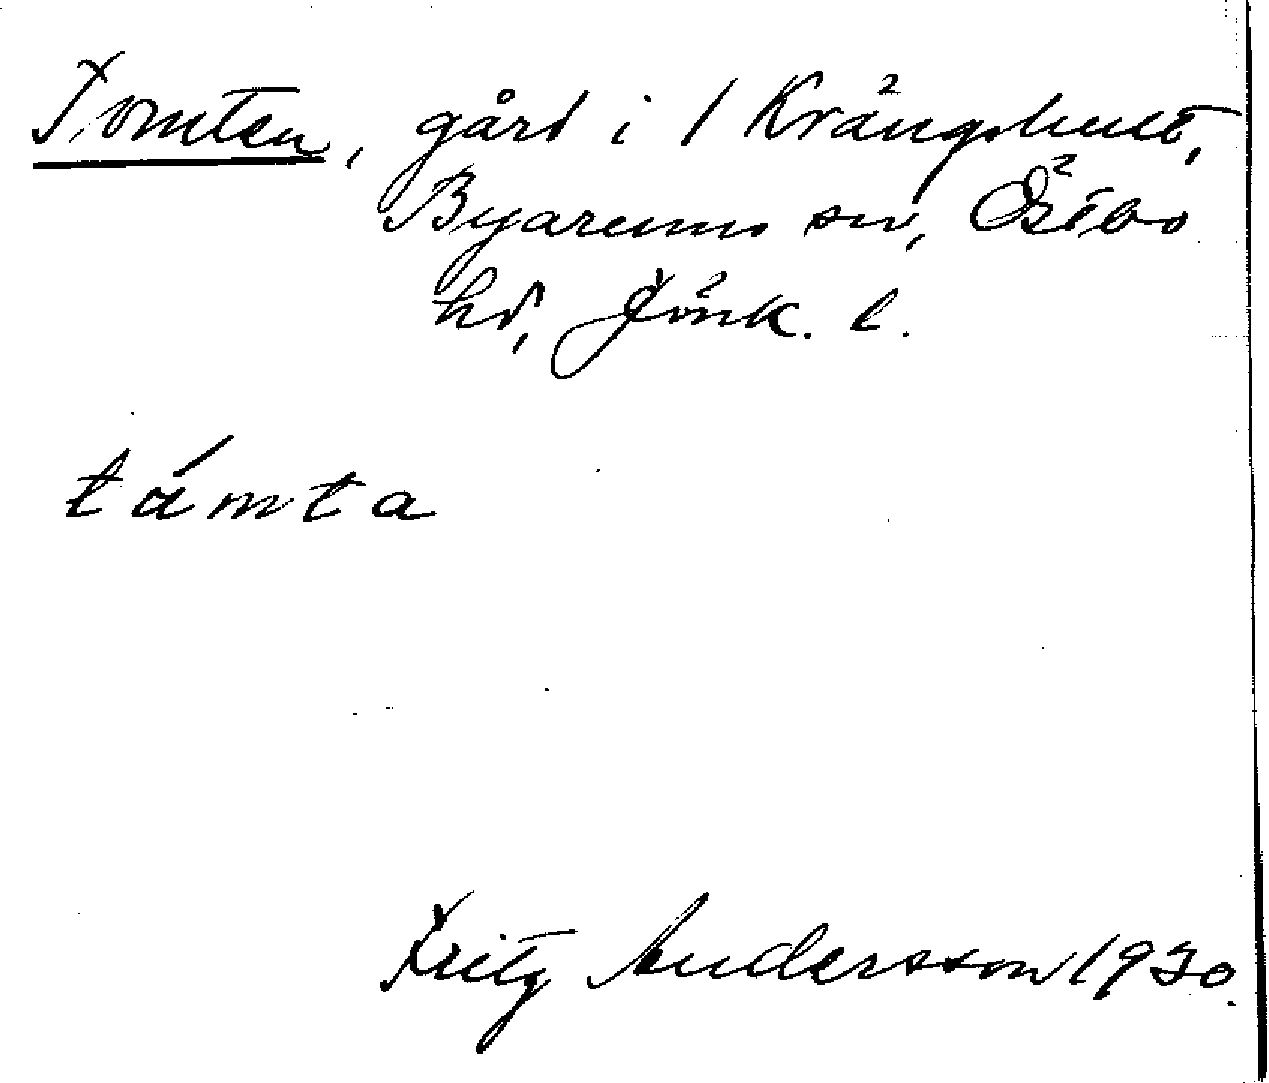 Tomten, gård i 1 Krängshult,
Byarums sn, Östbo
hd, Jönk. l.
támta
Fritz Andersson 1930.